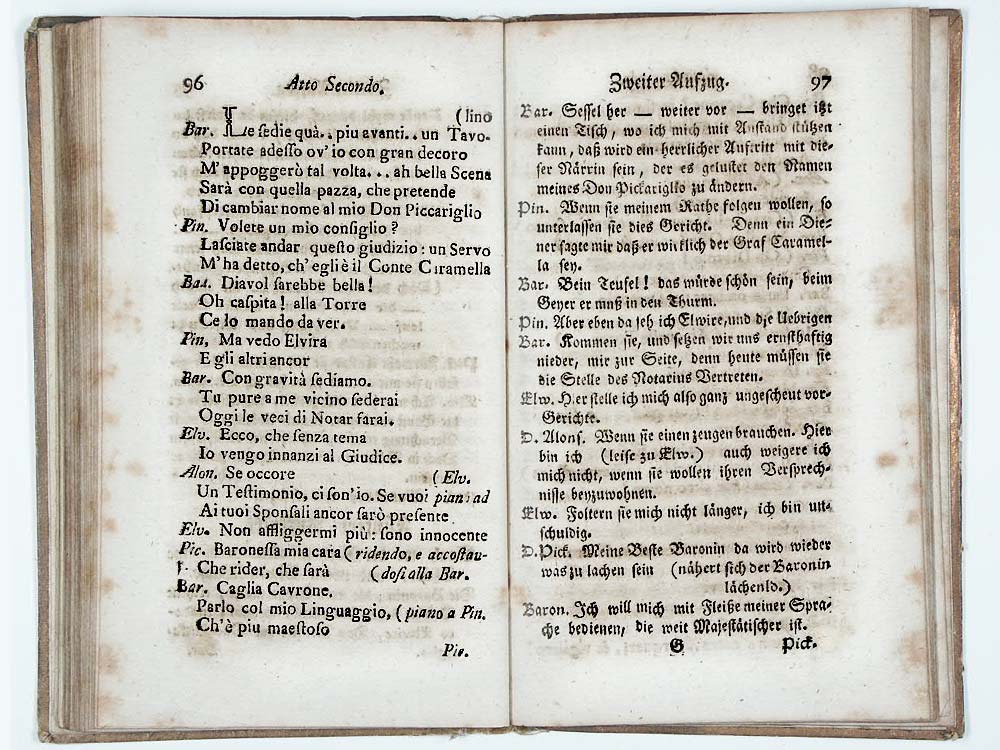 96 Atto Secondo.
(lino
Bar. Le sedie quà.. piu avanti.. un Tavo-
Portate adeſſo ov' io con gran decoro
M' appoggerò tal volta... ah bella Scena
Sarà con quella pazza, che pretende
Di cambiar nome al mio Don Piccariglio
Pin. Volete un mio conſiglio?
Laſciate andar queſto giudizio: un Servo
M' ha detto, ch' egli è il Conte Caramella
Bar. Diavol ſarebbe bella!
Oh caſpita! alla Torre
Ce lo mando da ver.
Pin, Ma vedo Elvira
E gli altri ancor
Bar. Con gravità ſediamo.
Tu pure a me vicino ſederai
Oggi le veci di Notar farai.
Elv. Ecco, che ſenza tema
Io vengo innanzi al Giudice.
Alon. Se occore (Elv.
Un Teſtimonio, ci ſon' io. Se vuoi pian: ad
Ai tuoi Sponſali ancor ſarò preſente
Elv. Non affliggermi più: ſono innocente
Pic. Baroneſſa mia cara (ridendo, e accoſtau-
Che rider, che ſarà (doſi alla Bar.
Bar. Caglia Cavrone.
Parlo col mio Linguaggio, (piano a Pin.
Ch'è piu maeſtoſo
Pic.
Zweiter Aufzug. 97
Bar. Seſſel her — weiter vor — bringet itzt
einen Tiſch, wo ich mich mit Anſtand ſtützen
kann, daß wird ein herrlicher Auftritt mit die-
ſer Närrin ſein, der es geluſtet den Namen
meines Don Pickariglio zu ändern.
Pin. Wenn ſie meinem Rathe folgen wollen, ſo
unterlaſſen ſie dies Gericht. Denn ein Die-
ner ſagte mir daß er wirklich der Graf Caramel-
la ſey.
Bar. Bein Teufel! das würde ſchön ſein, beim
Geyer er muß in den Thurm.
Pin. Aber eben da ſeh ich Elwire, und die Uebrigen
Bar. Kommen ſie, und ſetzen wir uns ernſthaftig
nieder, mir zur Seite, denn heute müſſen ſie
die Stelle des Notarius Vertreten.
Elw. Hier ſtelle ich mich alſo ganz ungeſcheut vor-
Gerichte.
D. Alonſ. Wenn ſie einen zeugen brauchen. Hier
bin ich (leiſe zu Elw.) auch weigere ich
mich nicht, wenn ſie wollen ihren Verſprech-
niſſe beyzuwohnen.
Elw. Foltern ſie mich nicht länger, ich bin un-
ſchuldig.
D. Pick. Meine Beſte Baronin da wird wieder
was zu lachen ſein (nähert ſich der Baronin
lächenld.)
Baron. Ich will mich mit Fleiße meiner Spra-
che bedienen, die weit Majeſtätiſcher iſt.
G Pick.